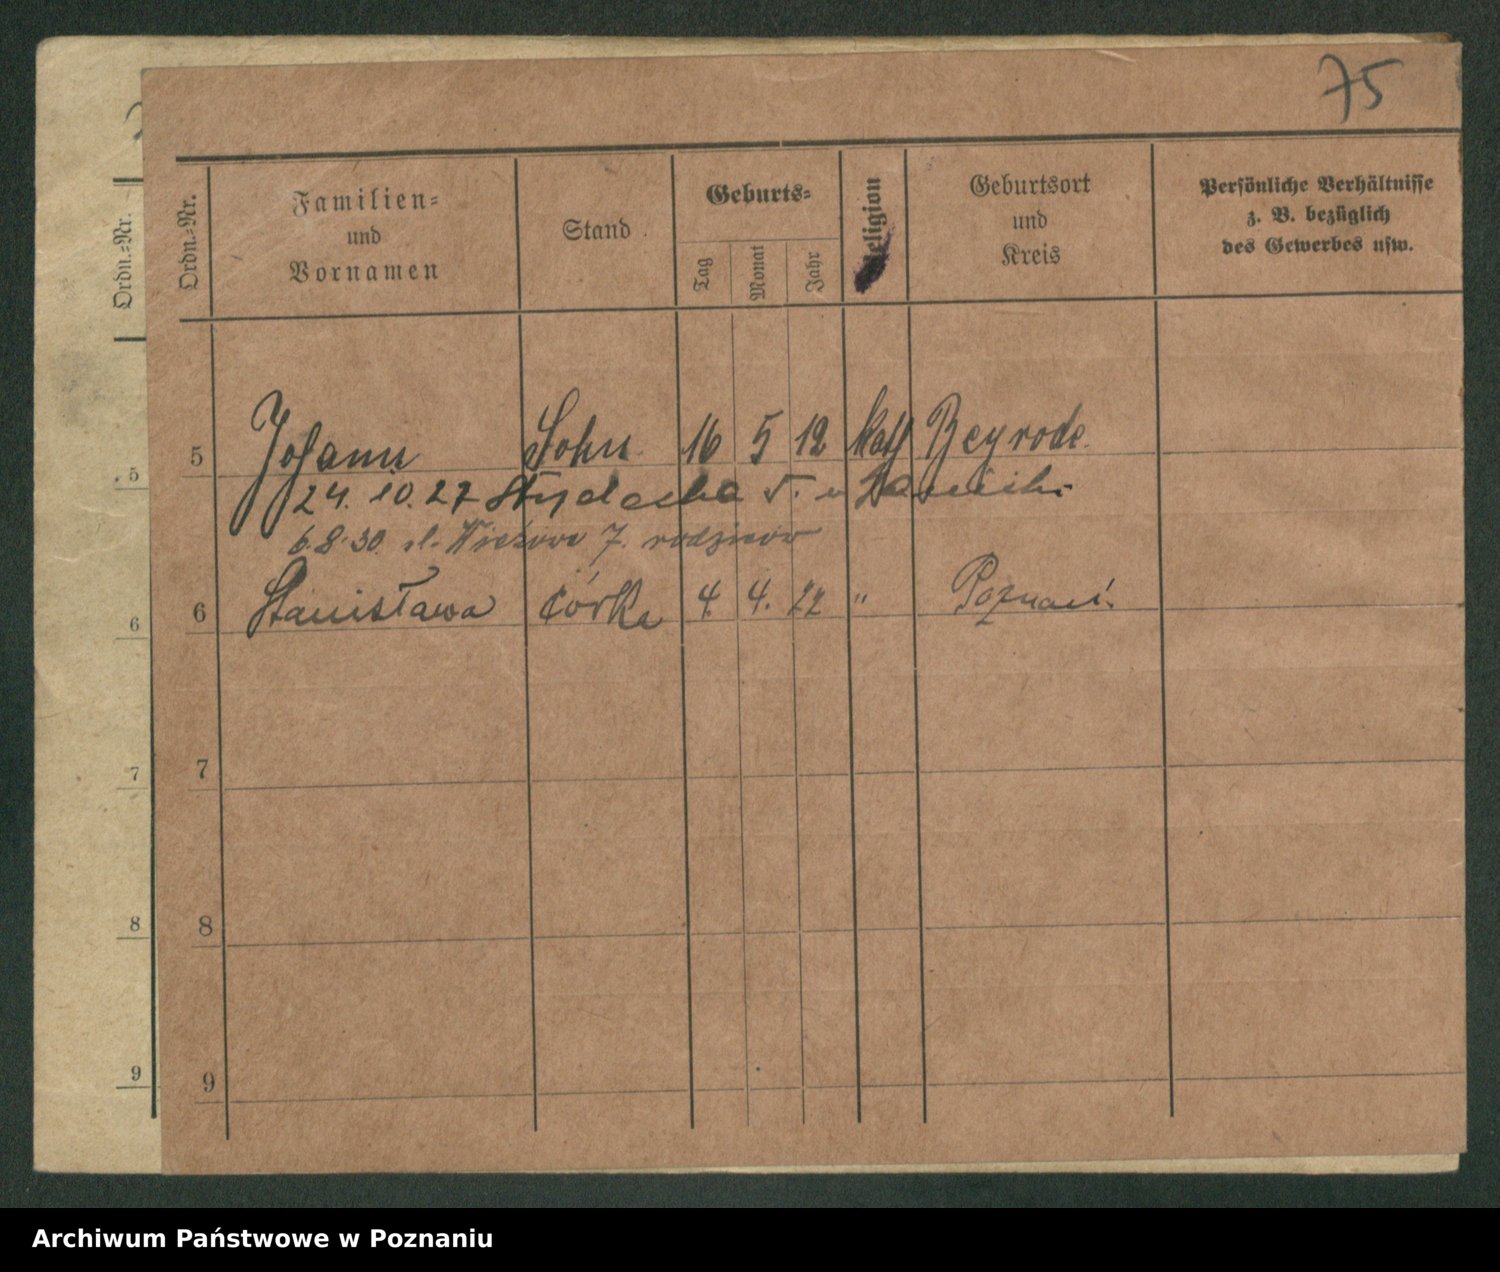 75
Ordn.-Nr.
Ordn.-Nr.
Familien-
und
Vornamen
Stand
Geburts-
Tag
Monat
Jahr
Religion
Geburtsort
und
Kreis
Persönliche Verhältnisse
z. B. bezüglich
des Gewerbes usw.
5
5 Johann Sohn 16 5 12 kath Beyrode.
24. 10. 27
6. 8. 30. ul. Wieżowa 7. rodziców
6
6 Stanisława córka 4 4. 22 " Poznań.
7
7
8
8
9
9
Archiwum Państwowe w Poznaniu